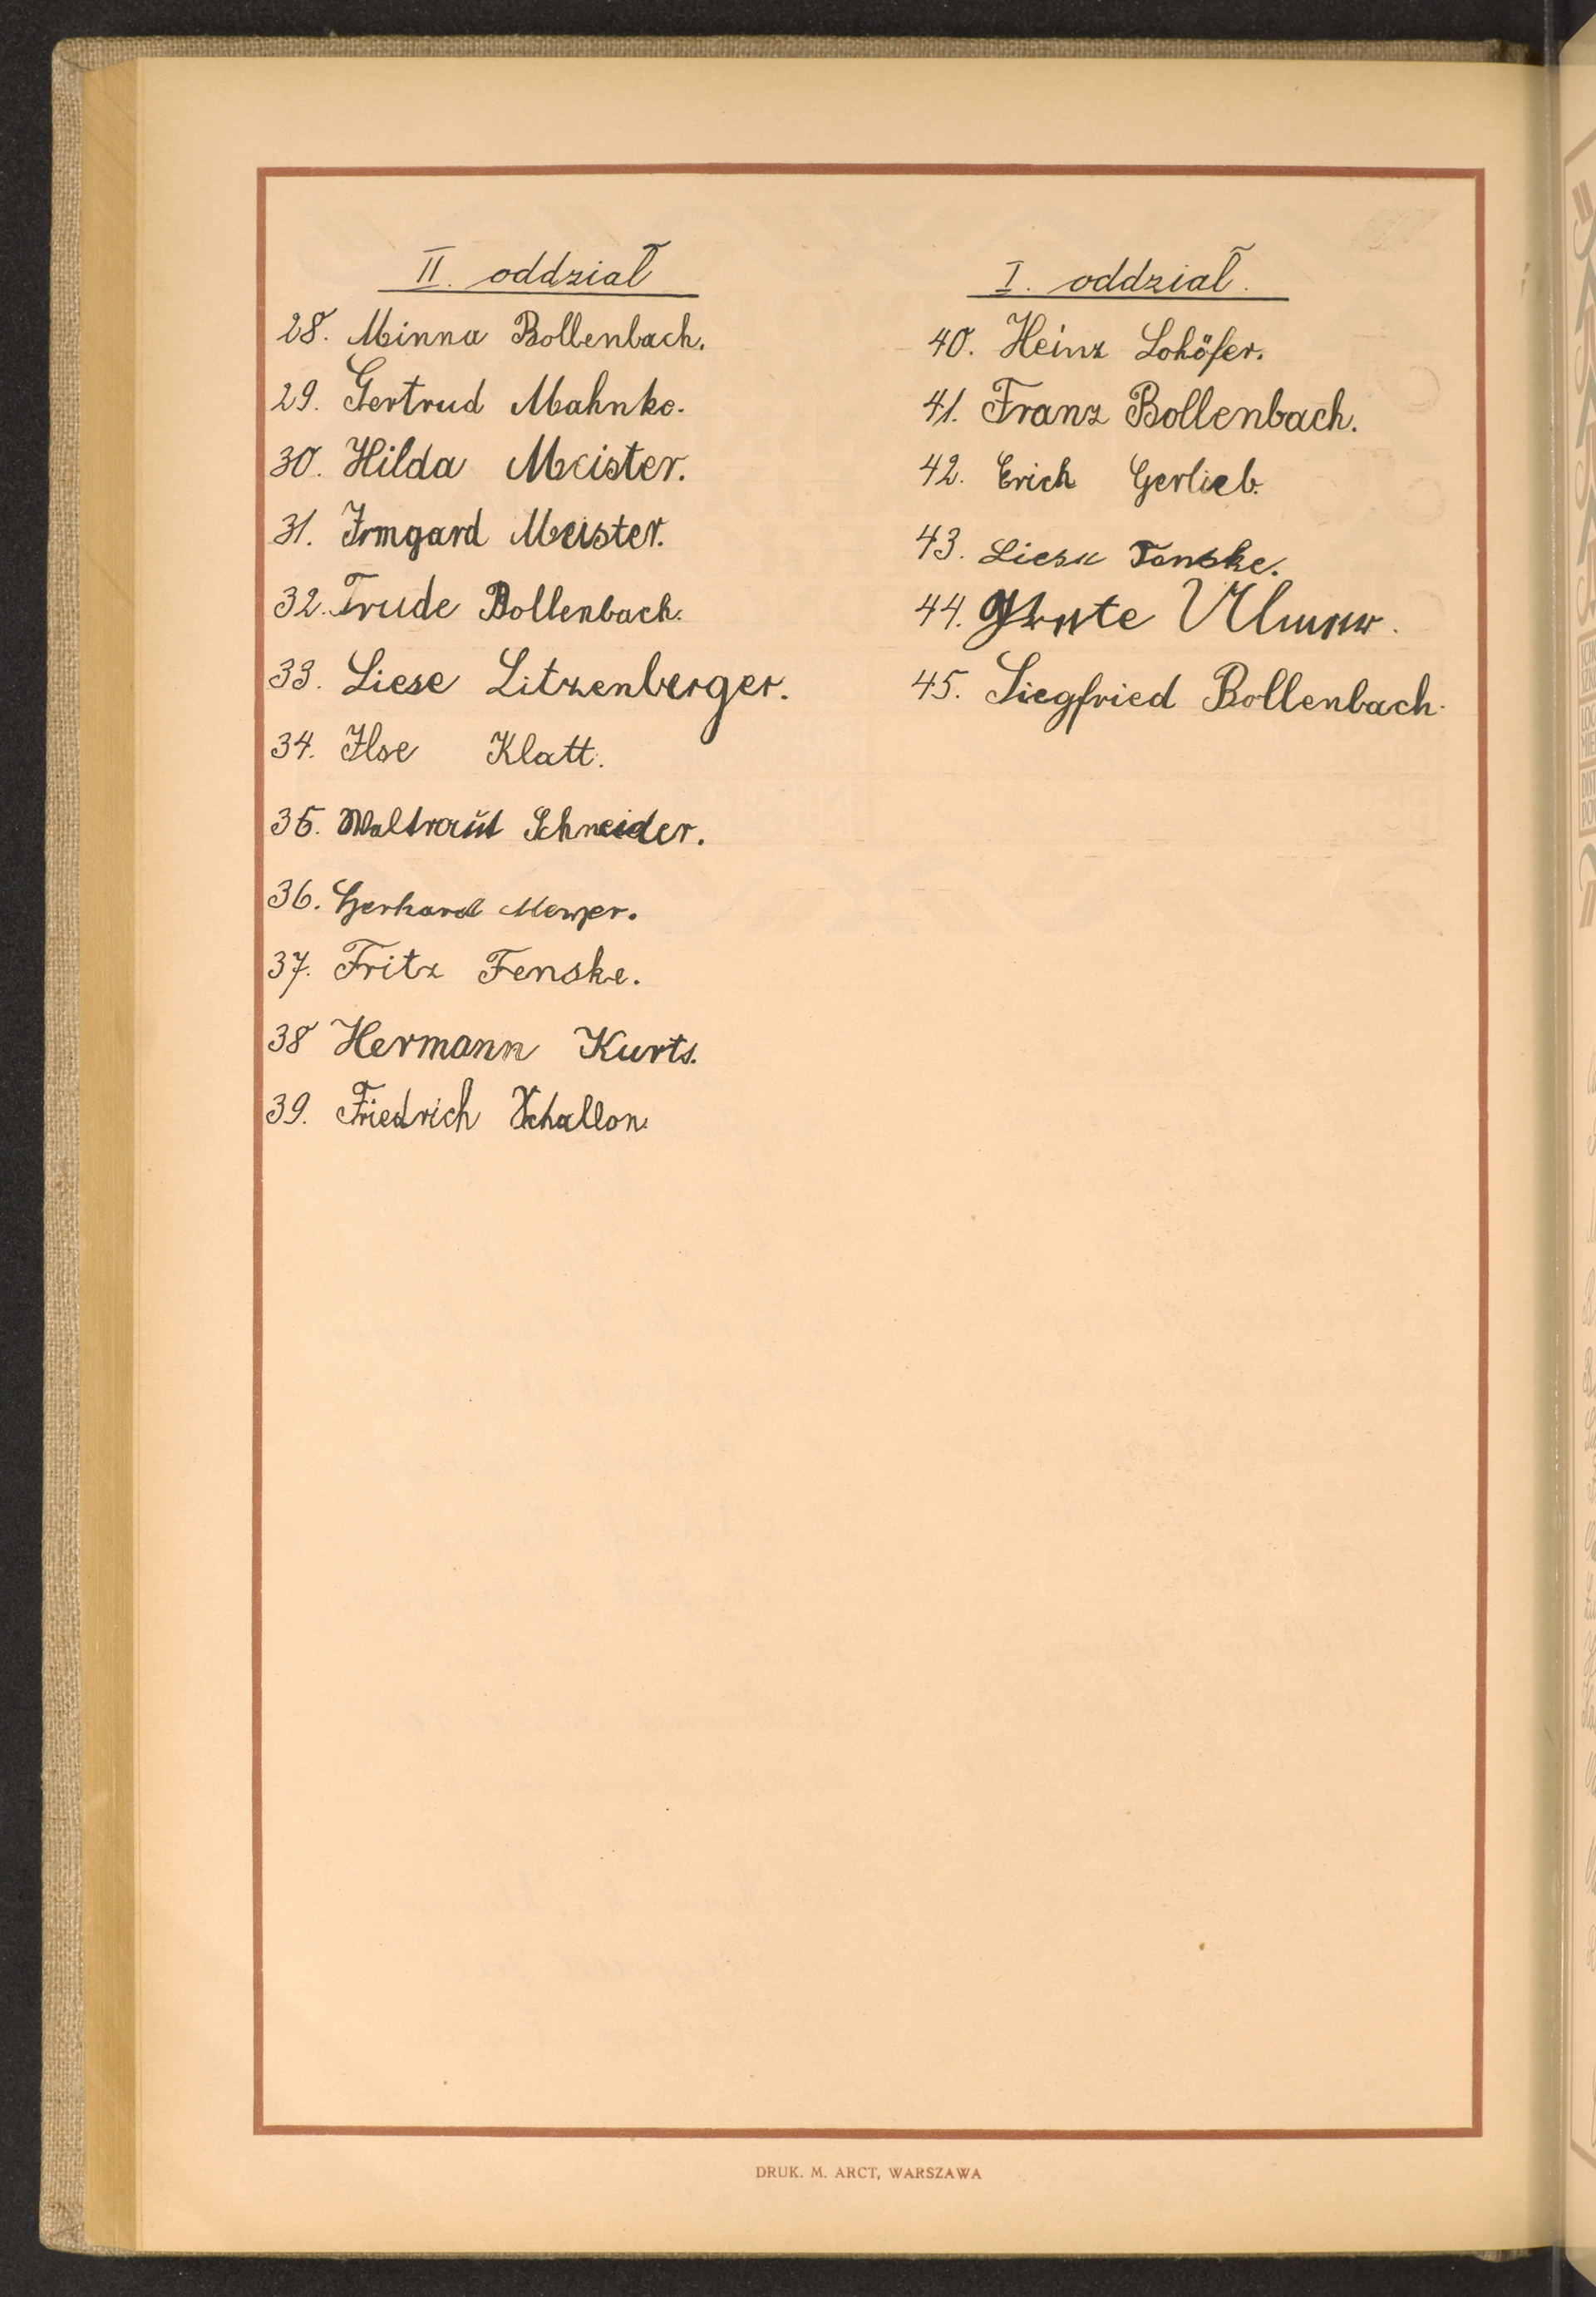 II. oddział
28. Minna Bollenbach.
29. Gertrud Mahnke.
30. Hilda Meister.
31. Irmgard Meister.
32. Trude Bollenbach.
33. Liese Litzenberger.
34. Ilse Klatt.
35. Waltraut Schneider.
36. Gerhard
37. Fritz Fenske.
38 Hermann Kurts.
39. Friedrich Schallon.
I. oddział.
40. Heinz Lohöfer.
41. Franz Bollenbach.
42. Erich Gerlieb.
43.
44.
45. Siegfried Bollenbach.
DRUK. M. ARCT, WARSZAWA